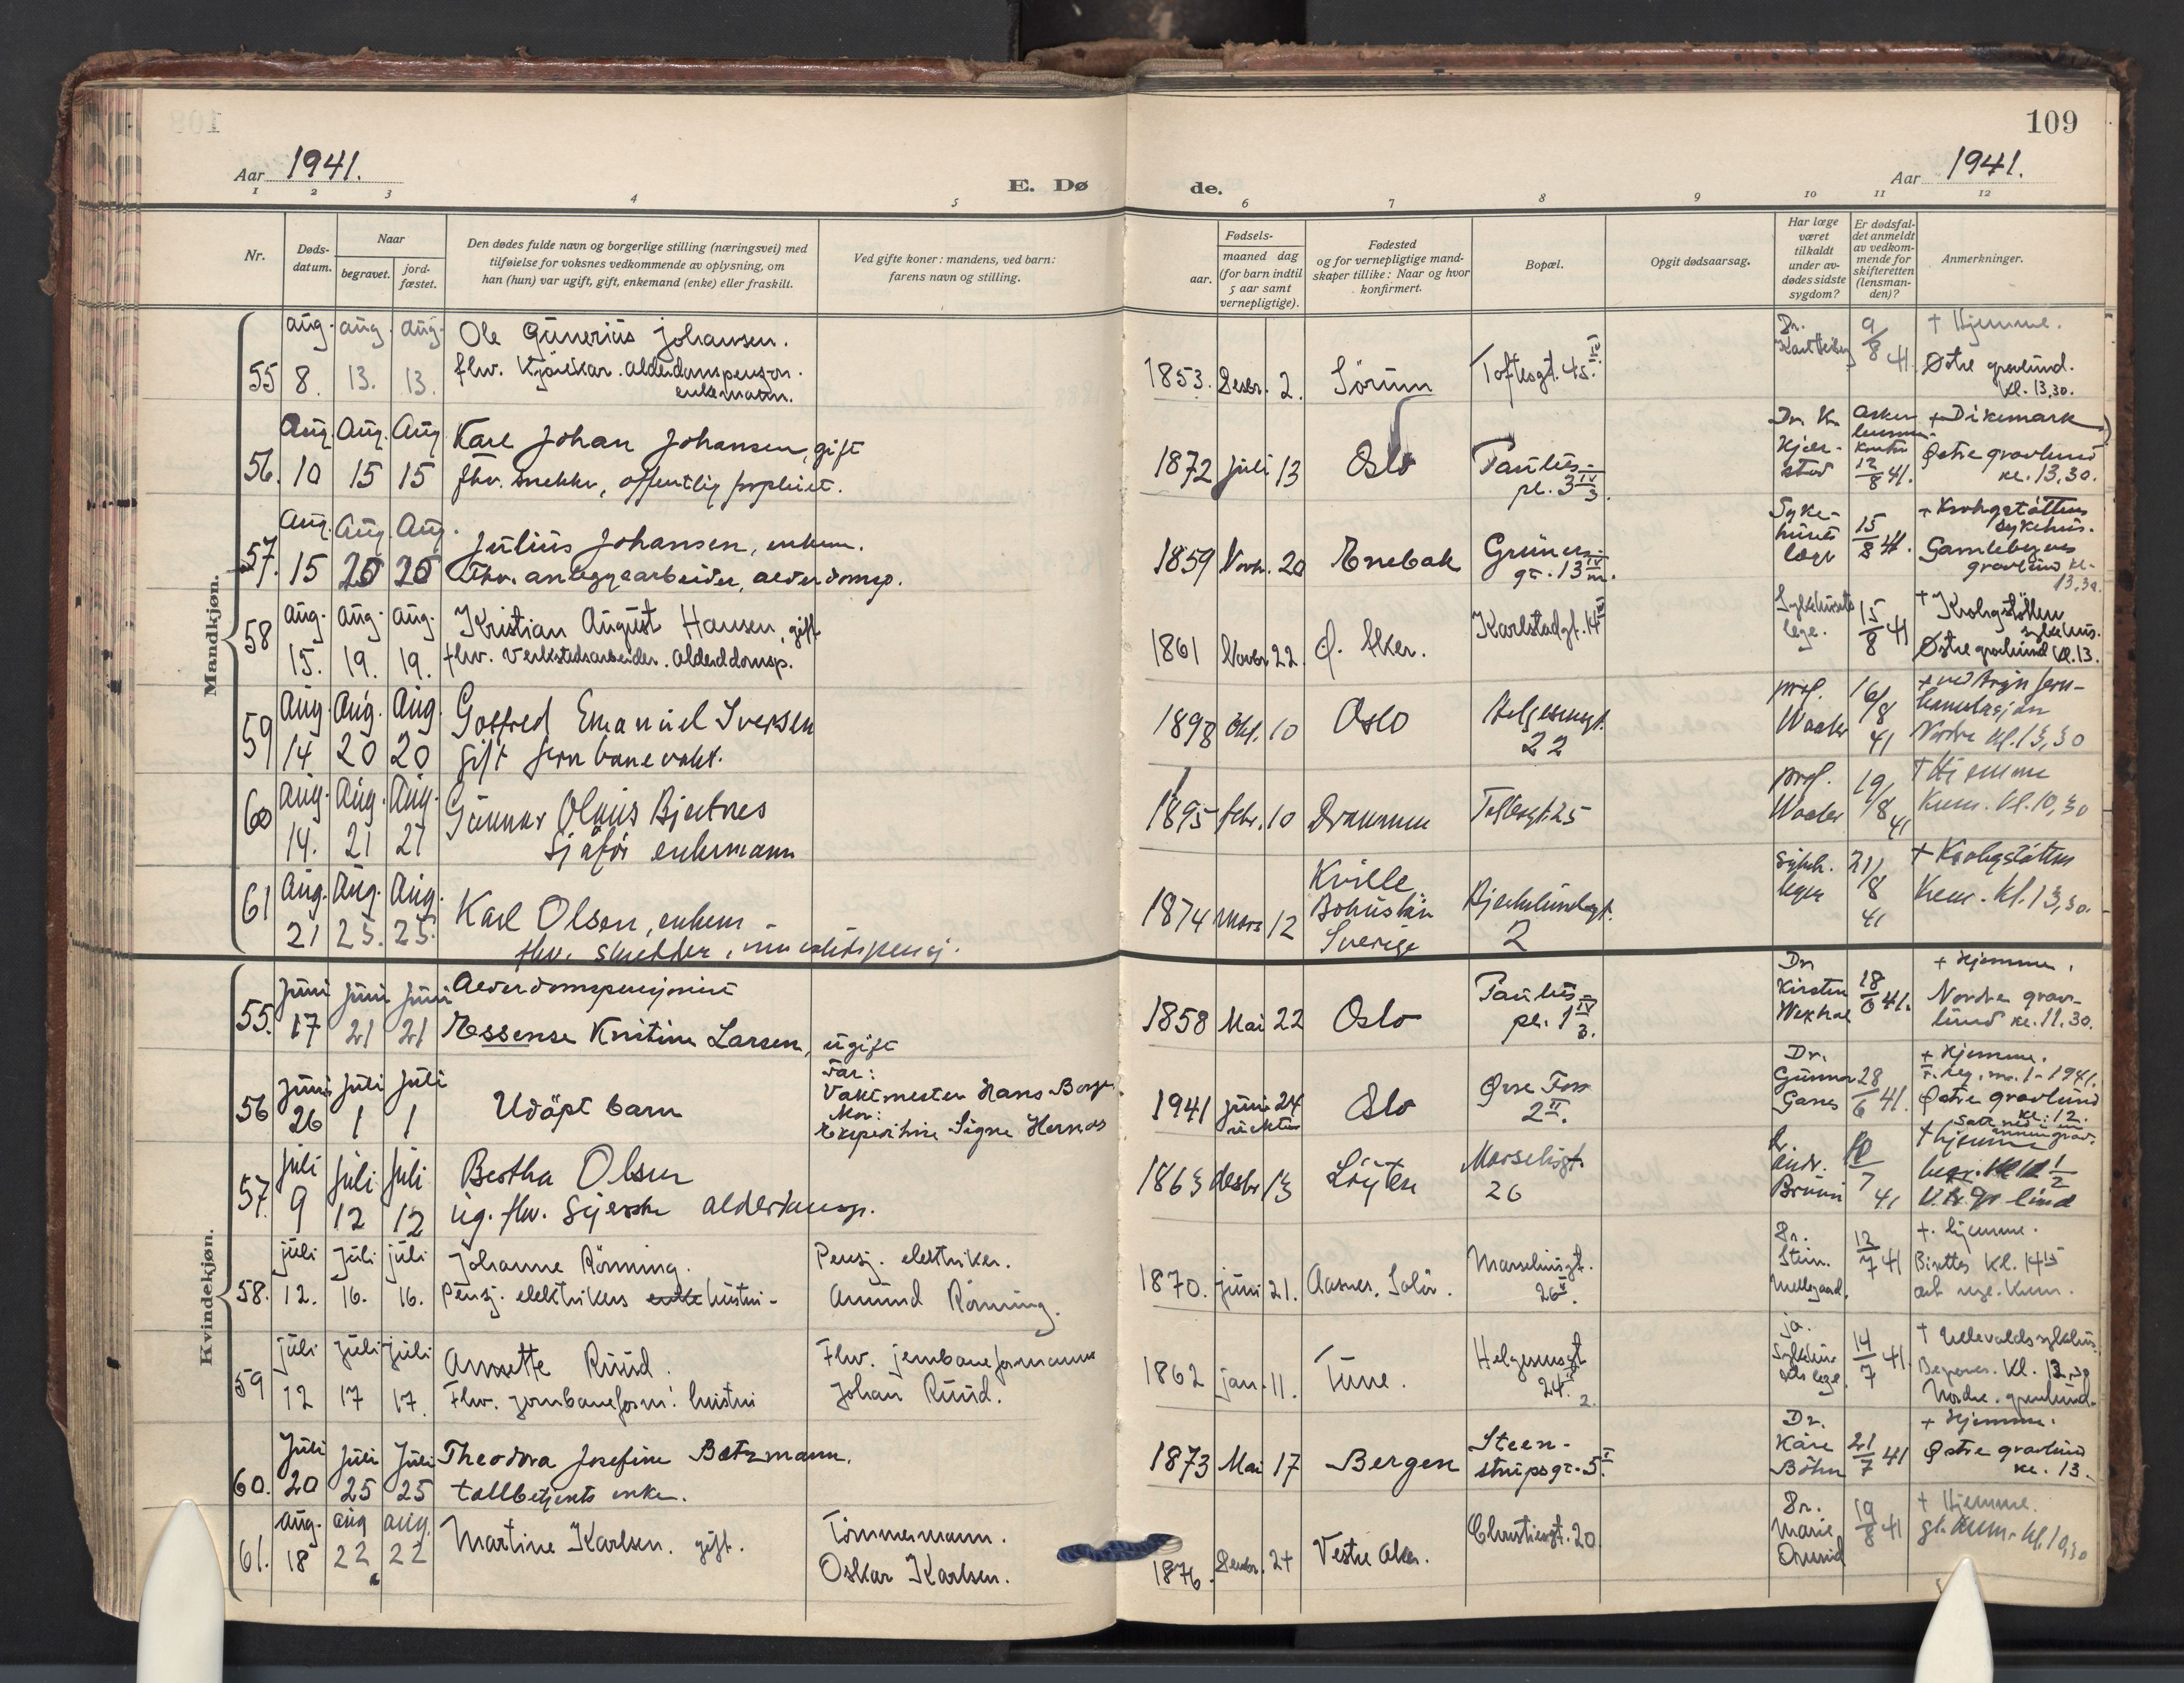 109
Aar 1941.
E. Dø
de.
Aar 1941.
1 2 3 4 5 6 7 8 9 10 11 12
Nr.
Døds-
datum.
Naar
begravet.
jord-
fæstet.
Den dødes fulde navn og borgerlige stilling (næringsvei) med
tilføielse for voksnes vedkommende av oplysning, om
han (hun) var ugift, gift, enkemand (enke) eller fraskilt.
Ved gifte koner: mandens, ved barn:
farens navn og stilling.
Fødsels-
aar.
maaned dag
(for barn indtil
5 aar samt
vernepligtige).
Fødested
og for vernepligtige mand-
skaper tillike: Naar og hvor
konfirmert.
Bopæl.
Opgit dødsaarsag.
Har læge
været
tilkaldt
under av-
dødes sidste
sygdom?
Er dødsfal-
det anmeldt
av vedkom-
mende for
skifteretten
(lensman-
den)?
Anmerkninger.
Mandkjøn.
55 aug. 8. aug. 13. aug. 13.
Ole Gunerius Johansen.
fhv. alderdomspensjon.
enkemann.
1853. Desbr. 2. Sörum Toftesgt. 45 IV
Dr.
9/8 41
+ Hjemme.
Østre gravlund.
Kl. 13,30.
56. Aug. 10 Aug. 15 Aug 15
Karl Johan Johansen, gift
fhv. snekker, offentlig forpleiet.
1872 juli 13 Oslo Paulus-
pl. 3 IV/3.
Dr. K.
Hjer-
stad
Asker
12/8 41.
+ Dikemark
Østre gravlund
kl. 13,30.
57. Aug. 15 Aug. 20 Aug. 20
Julius Johansen, enkem.
Fhv. anleggsarbeider, alderdomsp.
1859 Novbr. 20 Enebak Grüners-
gt. 13 IV m.
Syke-
husets
lege
15/8 41.
+ Krohgstöttens
sykehus.
Gamlebyens
gravlund kl.
13,30.
58 aug. 15. aug. 19. aug. 19.
Kristian August Hansen, gift
fhv. Verkstedsarbeider. Alderdomsp.
1861 Novbr 22. Ø. Aker. Karlstadgt. 14 III
Sykehusets
lege.
15/8 41
+ Krohgstötten
sykehus.
Østre gravlund Kl. 13.
59 Aug. 14 Aug. 20 Aug. 20
Gotfred Emanuel Iversen
gift jernbanevakt.
1898 Okt. 10 Oslo Helgesensgt.
22
prof.
Waaler
16/8
41
+ ved Bryn jern-
banestasjon
Nordre kl. 13,30
60 Aug. 14. Aug. 21 Aug. 21
Gunnar Olaus Bjertnes
Sjåför enkemann
1895 febr. 10 Drammen Toftesgt. 25
prof.
Waaler
19/8
41
+ Hjemme
Krem. Kl. 10,30
61 Aug. 21 Aug. 25. Aug. 25.
Karl Olsen, enkem -
fhv. skredder, invalidepensj.
1874 mars 12 Kville
Bohuslän
Sverige Bjerkelundsgt.
2
sykeh.
legen
21/8
41
+ Krohgstötten
Krem. Kl. 13,30.
Kvindekjøn.
55. Juni 17 Juni 21 Juni 21
Alderdomspensjonist
Essense Kristine Larsen, ugift
1858 Mai 22 Oslo Paulus-
pl. 1 IV/3.
Dr
Kirsten
18/6 41.
+ Hjemme.
Nordre grav-
lund kl. 11.30.
56 Juni 26 Juli 1 Juli 1
Udöpt barn
Far:
Vaktmester Hans Borge.
Mor:
Ekspeditrise Signe
1941 juni 24 Oslo Övre Foss
2 II.
Dr.
Gunnar
28/6 41.
+ Hjemme.
F. reg. nr. 1 - 1941.
Østre gravlund
kl. 12.
Satt ned i en
annen grav.
57. juli 9 juli 12 juli 12
Bertha Olsen
ug. fhv. syerske alderdomsp.
1863 desbr 13 Löyten Marselisgt.
26
Bruun
10/7
41
+ hjemme
58. juli 12. juli 16. juli 16.
Johanne Rönning.
Pensj. elektrikers enke hustru -
Pensj. elektriker.
Amund Rönning.
1870. juni 21. Aasnes, Solör. Marselisgt.
26 II.
Dr.
Stein.
12/7 41
+. hjemme.
Kl. 14 15
59 juli 12 juli 17 juli 17.
Annette Ruud.
Fhv. jernbaneform: hustru
Fhv. jernbaneformann
Johan Ruud.
1862 jan. 11. Tune. Helgesensgt
24. 2.
ja.
Sykehus-
ets lege.
14/7 41.
+ Ullevaalds sykehus.
Begraves. Kl. 12,30
Nordre. gravlund.
60. Juli 20 Juli 25 Juli 25
Theodora Josefine Batzmann.
tollbetjents enke.
1873 Mai 17 Bergen Steen-
strupsgt. 5 I.
Dr.
Kåre
Böhn
21/7 41
+ Hjemme.
Østre gravlund
kl. 13.
61. aug. 18 aug 22 aug. 22
Martine Karlsen. gift.
Tömmermann.
Oskar Karlsen.
1876. Desbr. 24 Vestre Aker. Christiesgt. 20
Dr.
Marie
19/8 41
+ Hjemme.
gl. Krem. kl. 10,30